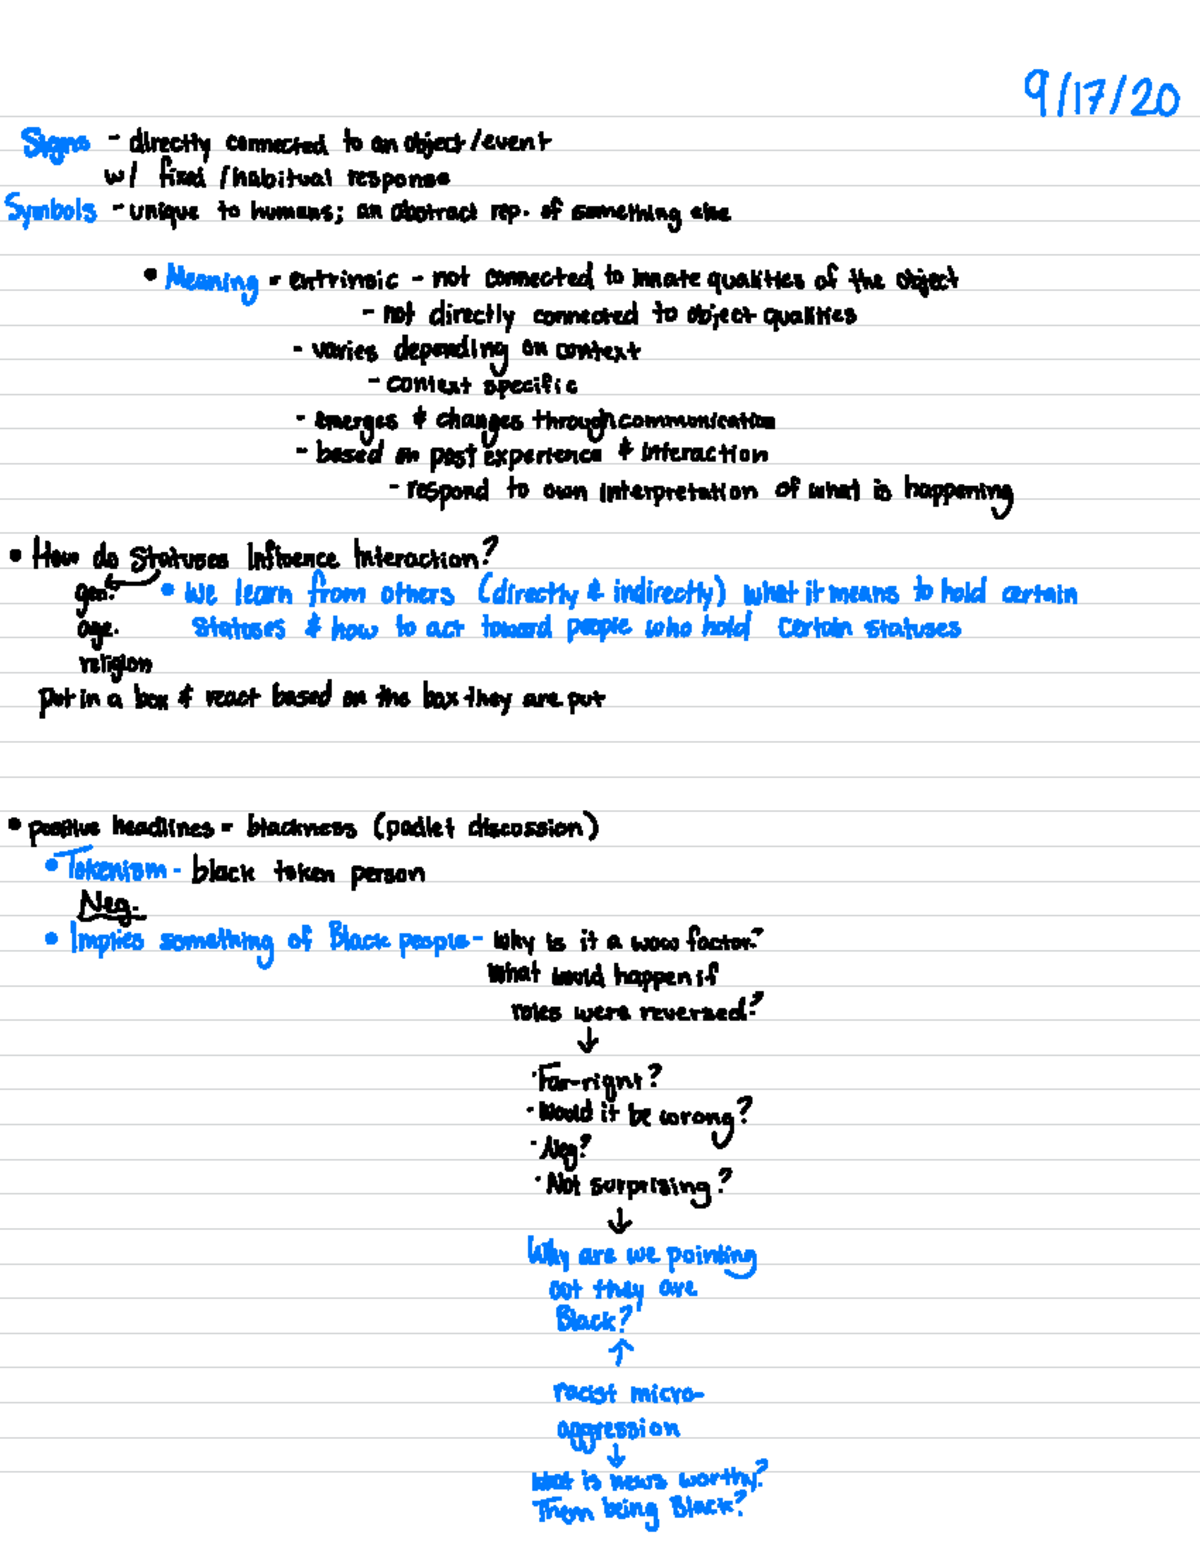 9/17/20
Signs - directly connected to an object/event
w/ fixed/habitual response
Symbols - unique to humans; an abstract rep. of something else
• Meaning - extrinsic - not connected to innate qualities of the object
- not directly connected to object qualities
- varies depending on context
- context specific
- emerges & changes through communication
- based on past experience & interaction
- respond to own interpretation of what is happening
• How do Statuses Influence Interaction?
gen. • We learn from others (directly & indirectly) what it means to hold certain
age. Statuses & how to act toward people who hold certain statuses
religion
put in a box & react based on the box they are put
• positive headlines - blackness (padlet discussion)
• Tokenism - black token person
Neg.
• Implies something of Black people - Why is it a wow factor?
What would happen if
roles were reversed?
↓
· Far-right?
· Would it be wrong?
· Neg?
· Not surprising?
↓
Why are we pointing
out they are
Black?
↑
racist micro-
aggression
↓
What is news worthy?
Them being Black?